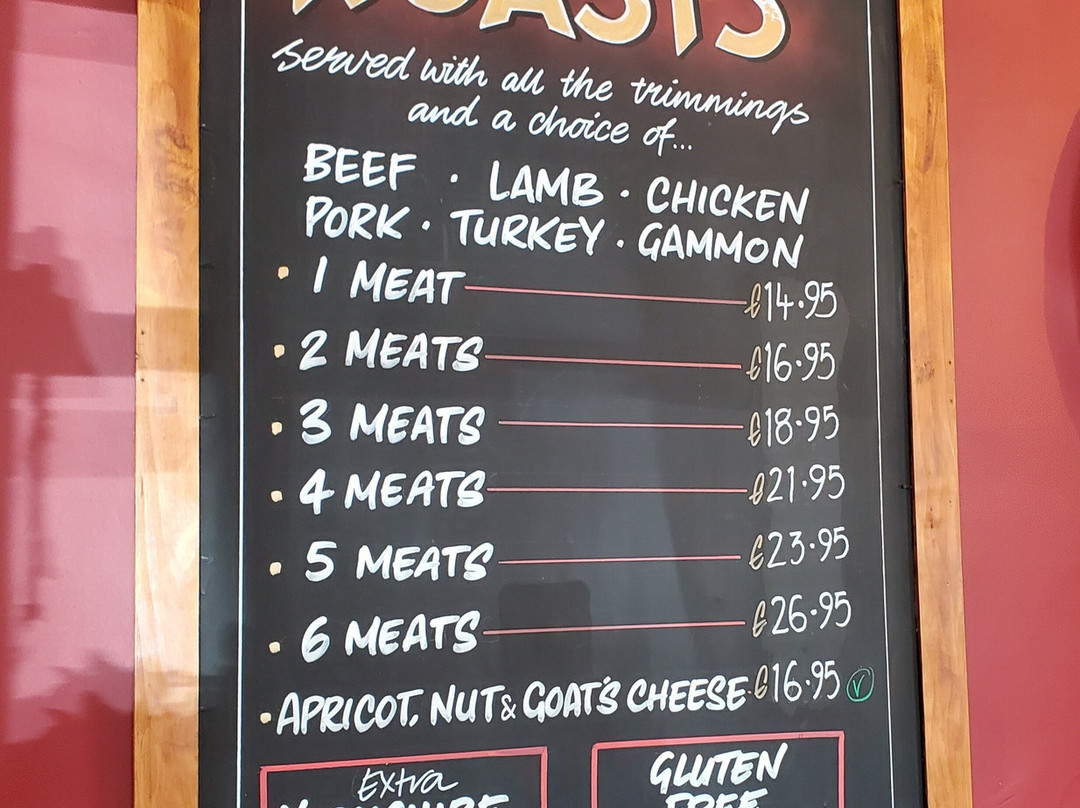 ROASTS
served with all the trimmings
and a choice of...
BEEF · LAMB · CHICKEN
PORK · TURKEY · GAMMON
· 1 MEAT £14.95
· 2 MEATS £16.95
· 3 MEATS £18.95
· 4 MEATS £21.95
· 5 MEATS £23.95
· 6 MEATS £26.95
· APRICOT, NUT & GOAT'S CHEESE £16.95 V
Extra
YORKSHIRE
GLUTEN
FREE